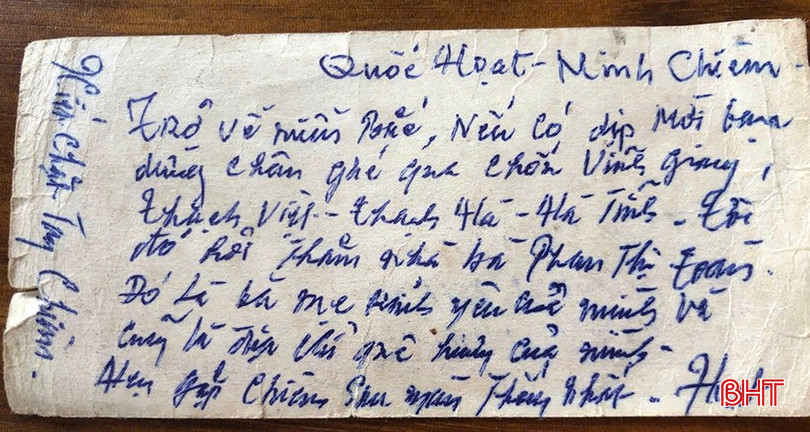 Quốc Hoạt - Minh Chiêm -
Trở về miền Bắc, Nếu có dịp Mời bạn
dừng chân ghé qua thôn Vĩnh Giang,
Thạch Việt - Thạch Hà - Hà Tĩnh. Tới
đó hỏi thăm nhà bà Phan Thị
Đó là bà mẹ kính yêu của mình và
cũng là dịp quê hương của mình -
Hẹn gặp Chiêm sau ngày Thống Nhất.
Xiết Chặt Tay Chiêm.
BHT